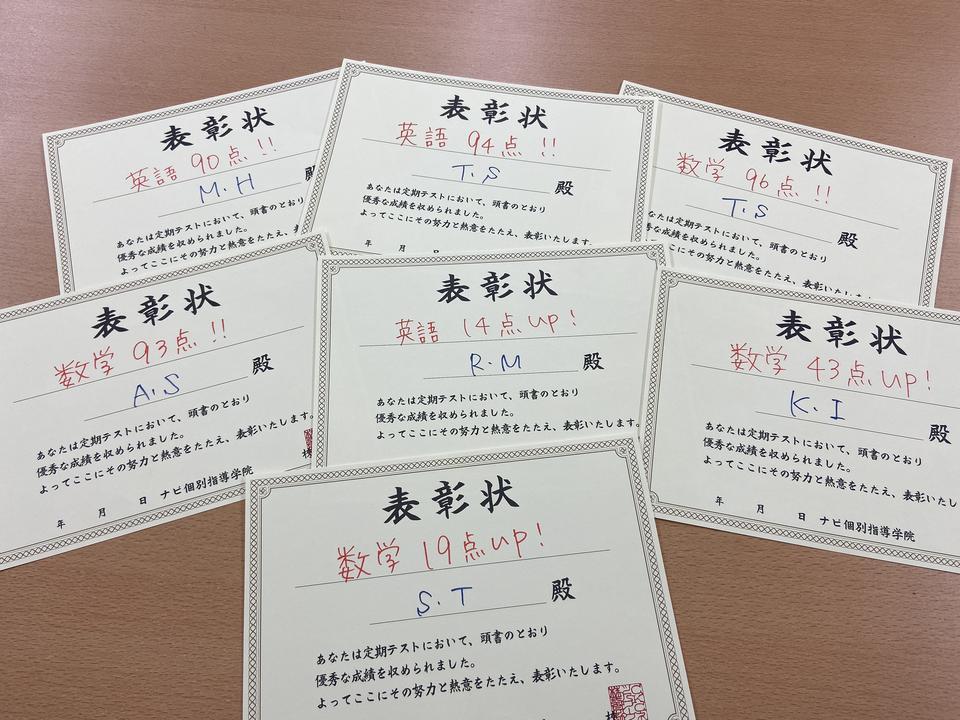 表彰状
英語 90点!!
M.H
あなたは定期テストにおいて、頭書のとおり
優秀な成績を収められました。
よってここにその努力と熱意をたたえ、表
表彰状
英語 94点!!
T.S 殿
あなたは定期テストにおいて、頭書のとおり
優秀な成績を収められました。
よってここにその努力と熱意をたたえ、表彰いたします。
年 月 日
表彰状
数学 96点!!
T.S 殿
なたは定期テストにおいて、頭書のとおり
な成績を収められました。
ここにその努力と熱意をたたえ、表彰いたし
表彰状
数学 93点!!
A.S 殿
あなたは定期テストにおいて、頭書のとおり
優秀な成績を収められました。
よってここにその努力と熱意をたたえ、表彰いたします。
年 月 日 ナビ個別指導学院
表彰状
英語 14点up!
R.M 殿
あなたは定期テストにおいて、頭書のとおり
優秀な成績を収められました。
よってここにその努力と熱意をたたえ、表彰いたします。
表彰状
数学 43点up!
K.I 殿
あなたは定期テストにおいて、頭書のとおり
優秀な成績を収められました。
よってここにその努力と熱意をたたえ、表彰いたし
年 月 日 ナビ個別指導学院
表彰状
数学 19点up!
S.T 殿
あなたは定期テストにおいて、頭書のとおり
優秀な成績を収められました。
よってここにその努力と熱意をたたえ、表彰いたします。